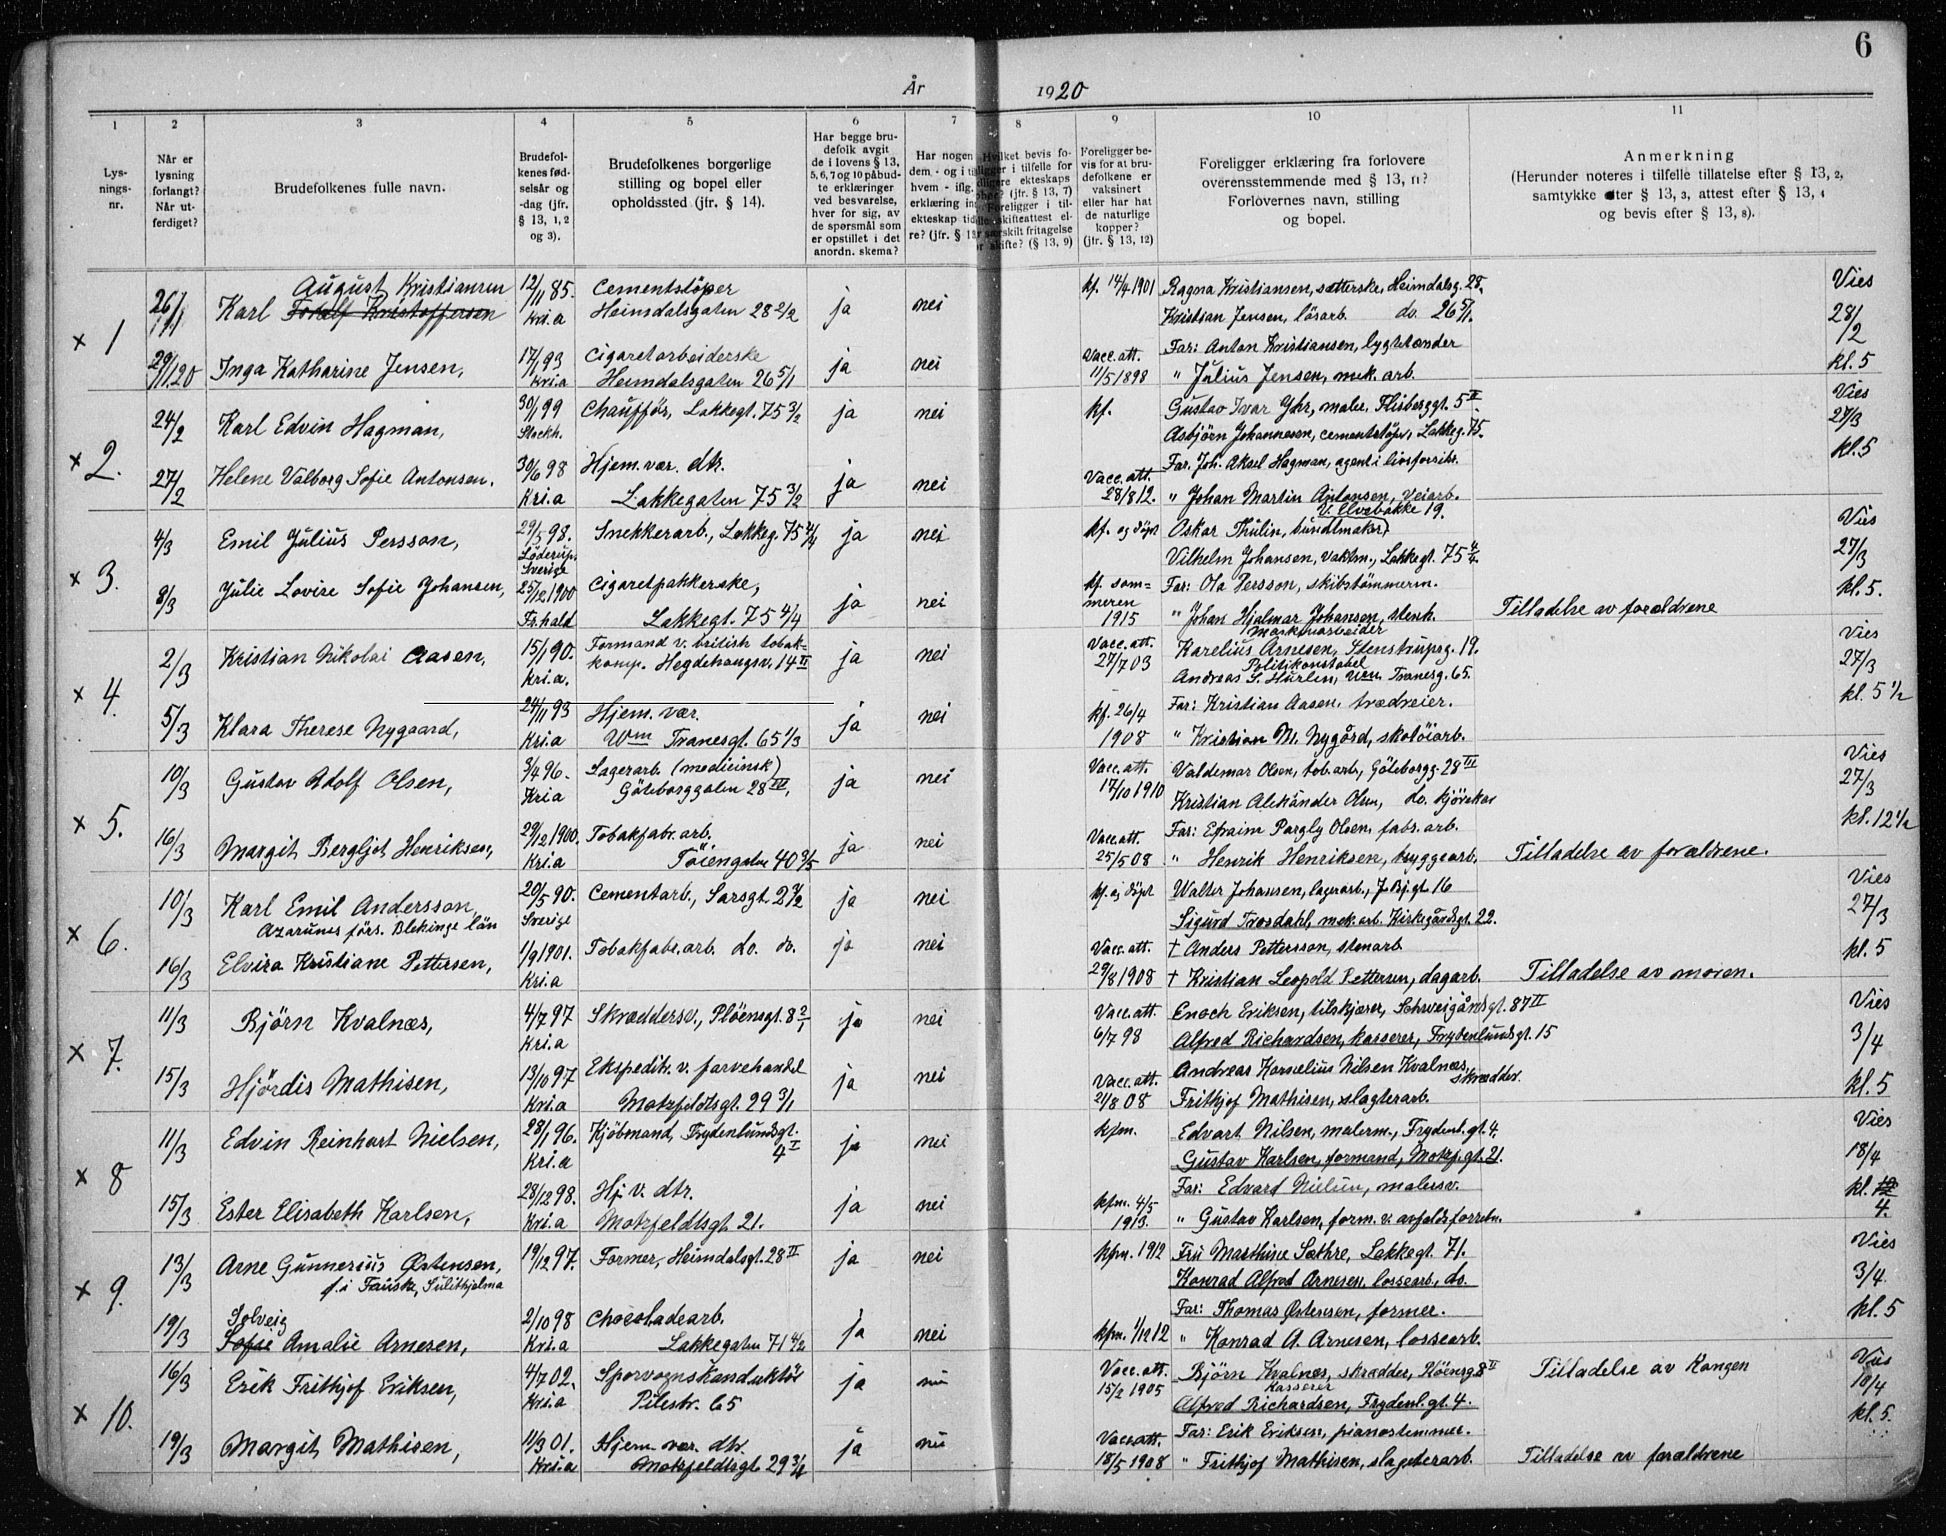 6
År 1920
1 2 3 4 5 6 7 8 9 10 11
Lys-
nings-
nr.
Når er
lysning
forlangt?
Når ut-
ferdiget?
Brudefolkenes fulle navn.
Brudefol-
kenes fød-
selsår og
-dag (jfr.
§ 13, 1, 2
og 3).
Brudefolkenes borgerlige
stilling og bopel eller
opholdssted (jfr. § 14).
Har begge bru-
defolk avgit
de i lovens § 13,
5, 6, 7 og 10 påbud-
te erklæringer
ved besvarelse,
hver for sig, av
de spørsmål som
er opstillet i det
anordn. skema?
Har nogen
dem, - og i
hvem - iflg.
erklæring in
ekteskap tid
re? (jfr. § 13
Hvilket bevis fo-
religger i tilfelle for
ekteskaps
(jfr. § 13, 7)
Foreligger i til-
skifteattest el-
særskilt fritagelse
skifte? (§ 13, 9)
Foreligger be-
vis for at bru-
defolkene er
vaksinert
eller har hat
de naturlige
kopper?
(jfr. § 13, 12)
Foreligger erklæring fra forlovere
overensstemmende med § 13, 11?
Forlovernes navn, stilling
og bopel.
Anmerkning
(Herunder noteres i tilfelle tillatelse efter § 13, 2,
samtykke efter § 13, 3, attest efter § 13, 4
og bevis efter § 13, 8).
x 1
26/1 Karl August Kristiansen Toralf Kristoffersen 12/11 85. Kri.a Cementstöper Heimdalsgaten 28 2/2 ja nei kf. 14/4 1901 Ragna Kristiansen, sætterske, Heimdalsg. 28. Vies
Kristian Jensen, lösarb. do. 26 5/1. 28/2
29/1 20 Inga Katharine Jensen, 17/1 93 Kri.a Cigaretarbeiderske Heimdalsgaten 26 5/1 ja nei Vacc. att. 11/5 1898 Far: Anton Kristiansen, lygtetænder
" Julius Jensen, mek. arb. kl. 5
x 2.
24/2 Karl Edvin Hagman, 30/1 99 Stockh. Chaufför, Lakkegt. 75 3/2 ja nei kf. Gustav Ivar Yhr, maler, Flisberggt. 5 II. Vies
Asbjörn Johannesen, cementstöper, Lakkeg. 75. 27/3
27/2 Helene Valborg Sofie Antonsen. 30/6 98 Kri.a Hjem. vær. dtr. Lakkegaten 75 3/2 ja nei Vacc. att. 28/8 12. Far. Joh. Aksel Hagman, agent i livsforsikr. kl. 5
" Johan Martin Antonsen, veiarb.
x 3.
4/3 Emil Julius Persson, 29/5 98. Löderup, Sverige Snekkerarb., Lakkeg. 75 4/4 ja nei kf. og döpt Oskar Thulin, bundtmaker, V. Elvebakke 19. Vies
Vilhelm Johansen, vaktm., Lakkegt. 75 4/4. 27/3
8/3 Julie Lovise Sofie Johansen, 25/12 1900 Fr.hald Cigaretpakkerske, Lakkegt. 75 4/4 ja nei kf. som= meren 1915 Far: Ola Persson, skibstömmerm. kl. 5.
" Johan Hjalmar Johansen, stenh. Tilladelse av forældrene
x 4.
2/3 Kristian Nikolai Aasen, 15/1 90. Kri.a. Formand v. british tobak= komp. Hegdehaugsv. 14 II ja nei Vacc. att. 27/7 03 Karelius Arnesen, Maskinarbeider Stenstrupsg. 19. Vies
Andreas S. Hurlen, Politikonstabel Wm Tranesg. 65. 27/3
5/3 Klara Therese Nygaard, 24/11 93 Kri.a Hjem. vær. Wm Tranesgt. 65 1/3 ja nei kf. 26/4 1908 Far: Kristian Aasen, trædreier. kl. 5 1/2
" Kristian M. Nygård, skotöiarb.
x 5.
10/3 Gustav Adolf Olsen, 3/4 96. Kria Lagerarb. (medicinsk) Göteborggaten 28 III, ja nei Vacc. att. 17/10 1910 Valdemar Olsen, tob. arb., Göteborgg. 28 III Vies
Kristian Aleksander Olsen, do. kjörekar 27/3
16/3 Margit Bergljot Henriksen, 29/12 1900. Kri.a Tobakfabr. arb. Töiengaten 40 3/5 ja nei Vacc. att. 25/5 08 Far: Efraim Pargly Olsen, fabr. arb. kl. 12 1/2
" Henrik Henriksen, bryggearb. Tilladelse av forældrene.
x 6.
10/3 Karl Emil Andersson, Azarums förs. Blekinge län 20/5 90. Sverige Cementarb., Sarsgt. 2 4/2 ja nei kf. og döpt Walter Johansen, lagerarb., J. Bj. gt. 16 Vies
Sigurd Trosdahl, mek. arb. Kirkegårdsgt. 22. 27/3
16/3 Elvira Kristiane Pettersen, 1/9 1901. Kri.a Tobakfabr. arb. do. do. ja nei Vacc. att. 29/8 1908 † Anders Pettersson, stenarb kl. 5
† Kristian Leopold Pettersen, dagarb. Tilladelse av moren.
x 7.
11/3 Björn Kvalnæs, 4/7 97 Kri.a Skrædders., Plöensgt. 8 2/1 ja nei Vacc. att. 6/7 98 Enoch Eriksen, tilskjærer, Schweigårdsgt. 87 II Vies
Alfred Richardsen, kasserer, Frydenlundsgt. 15 3/4
15/3 Hjördis Mathisen, 13/10 97 Kri.a Ekspeditr. v. farvehandel Motzfeldtsgt. 29 3/1 ja nei Vacc. att. 21/8 08 Andreas Kornelius Nilsen Kvalnæs, skrædder. kl. 5
Frithjof Mathisen, slagterarb.
x 8
11/3 Edvin Reinhart Nielsen, 28/1 96. Kri.a Kjöbmand, Frydenlundsgt. 4 I ja nei kfm. Edvart Nilsen, malerm., Frydenl. gt. 4. Vies
Gustav Karlsen, formand, Motzf. gt. 21. 18/4
15/3 Ester Elisabeth Karlsen, 28/12 98. Kri.a Hj. v. dtr. Motzfeldtsgt. 21. ja nei kfm. 4/5 1913. Far: Edvard Nielsen, malersv. kl. 4.
" Gustav Karlsen, form. v. avfaldsforretn.
x 9.
13/3 Arne Gunnerius Østensen, f. i Fauske, Sulithjelma 19/12 97. Former, Heimdalsgt. 28 II ja nei kfm. 1912 Fru Marthine Sæthre, Lakkegt. 71. Vies
Konrad Alfred Arnesen, lossearb., do. 3/4
19/3 Solveig Sofie Amalie Arnesen, 2/10 98 Kri.a Chocoladearb. Lakkegaten 71 4/2 ja nei kfm. 1/12 12 Far: Thomas Østensen, former. kl. 5
" Konrad A. Arnesen, lossearb.
x 10.
16/3 Erik Frithjof Eriksen, 4/7 02. Kri.a Sporvognskonduktör Pilestr. 65 ja nei Vacc. att. 15/2 1905 Björn Kvalnæs, skrædder, Plöensg. 8 II Tilladelse av Kongen Vies
Alfred Richardsen, Kasserer Frydenl. gt. 4. 10/4
19/3 Margit Mathisen, 11/3 01. Kri.a Hjem. vær. dtr. Motzfeldtsgt. 29 3/1 ja nei Vacc. att. 18/5 1908 Far: Erik Eriksen, pianostemmer. kl. 5.
" Frithjof Mathisen, slagterarb. Tilladelse av forældrene